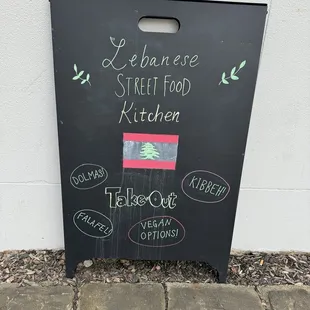 Lebanese
STREET FOOD
Kitchen
DOLMAS!
KIBBEH!
Take-Out
FALAFEL!
VEGAN
OPTIONS!